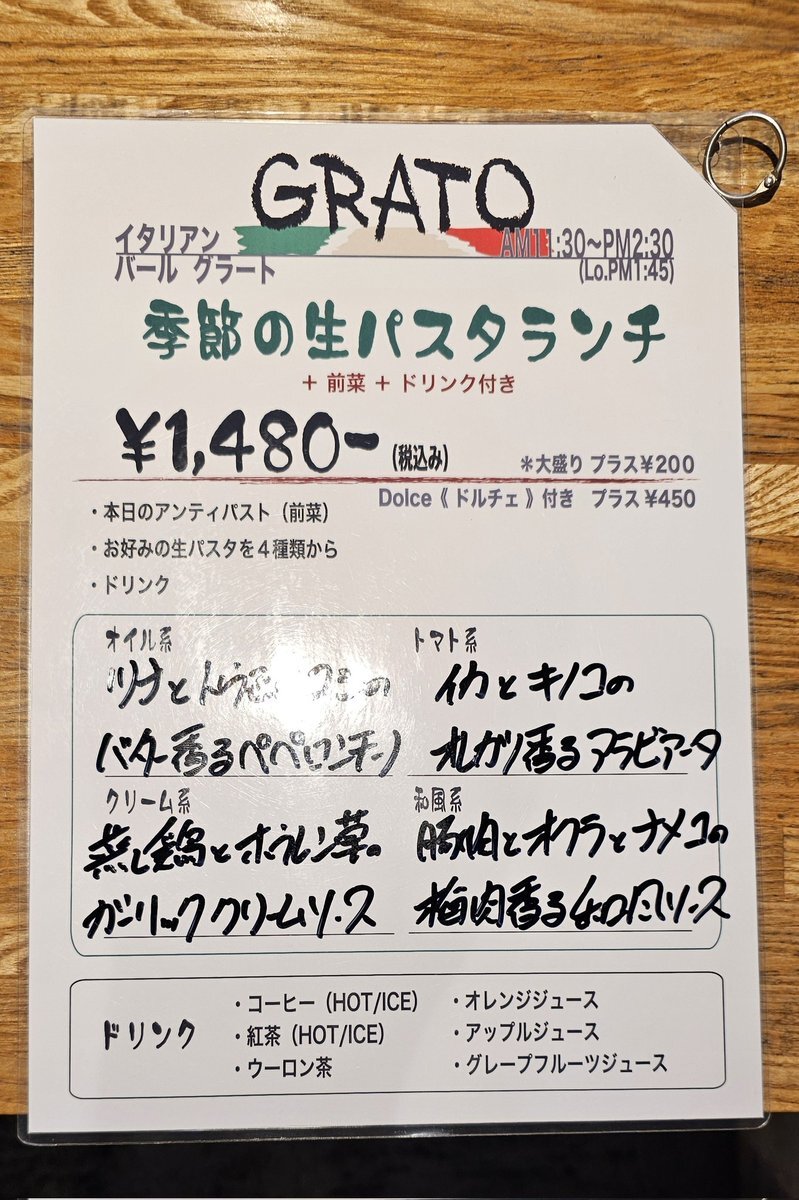 GRATO
イタリアン
バール グラート
AM11:30〜PM2:30
(Lo.PM1:45)
季節の生パスタランチ
＋ 前菜 ＋ ドリンク付き
¥1,480-
(税込み)
＊大盛り プラス¥200
Dolce《 ドルチェ 》付き プラス ¥450
・本日のアンティパスト（前菜）
・お好みの生パスタを４種類から
・ドリンク
オイル系
ツナとトウモロコシの
バター香るペペロンチーノ
トマト系
イカとキノコの
オレガノ香るアラビアータ
クリーム系
蒸し鶏とホウレン草の
ガーリッククリームソース
和風系
豚肉とオクラとナメコの
梅肉香る和風ソース
ドリンク
・コーヒー（HOT/ICE）
・紅茶（HOT/ICE）
・ウーロン茶
・オレンジジュース
・アップルジュース
・グレープフルーツジュース